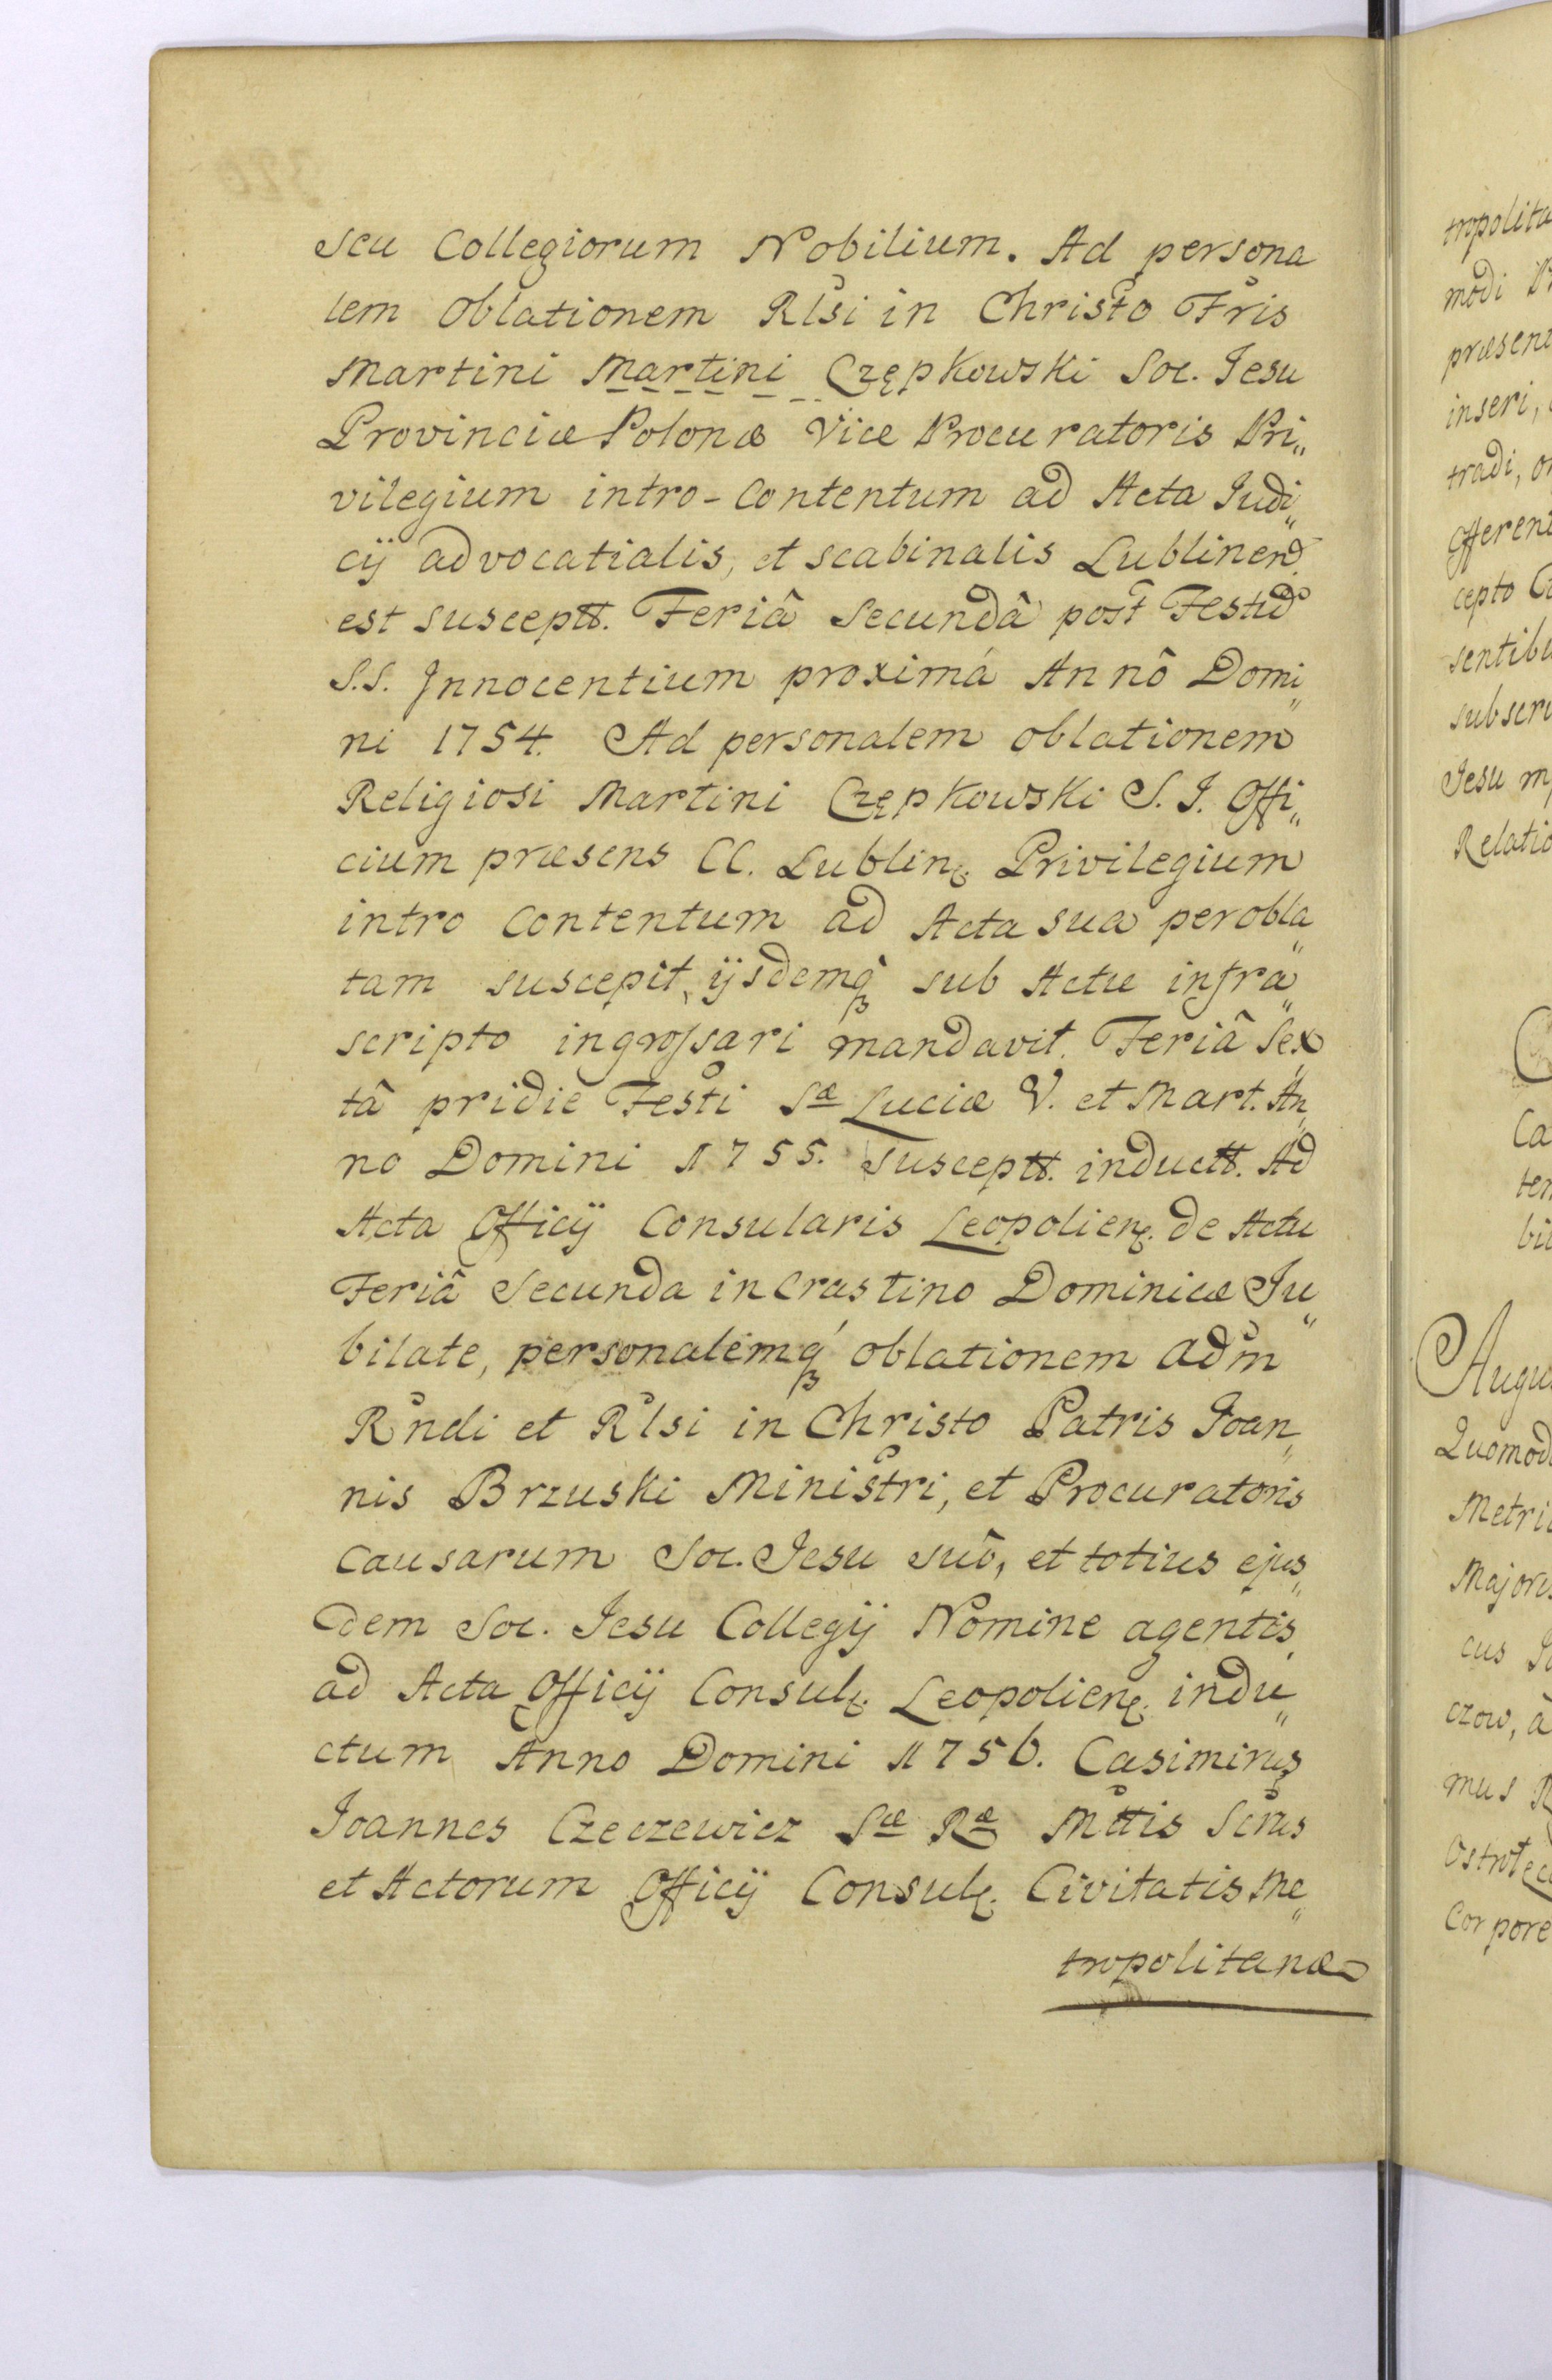 seu Collegiorum Nobilium. Ad persona
lem Oblationem Rlsi in Christo Fris
Martini Martini Czępkowski Soc. Jesu
Provinciæ Polonæ Vice Procuratoris Pri„
vilegium intro-contentum ad Acta Judi„
cij advocatialis, et scabinalis Lublinen
est susceptt. Feriâ Secundâ post Festũ
S.S. Innocentium proximá Annô Domi„
ni 1754. Ad personalem oblationem
Religiosi Martini Czępkowski S. J. Offi„
cium præsens CC. Lublin. Privilegium
intro contentum ad Acta sua per obla„
tam suscepit, ijsdemq̀ sub Actu infra„
scripto ingrossari mandavit. Feriâ Sex„
tâ pridie Festi Sæ Luciæ V. et Mart. An„
no Domini 1755. Susceptt. inductt. Ad
Acta Officij Consularis Leopolien. de Actu
Feriâ Secunda in Crastino Dominicæ Ju„
bilate, personalemq́ oblationem adm
Rndi et Rlsi in Christo Patris Joan„
nis Brzuski Ministri, et Procuratoris
Causarum Soc. Jesu suô, et totius ejus„
dem Soc. Jesu Collegij Nomine agentis,
ad Acta Officij Consul. Leopolien. indu„
ctum Anno Domini 1756. Casimirus
Joannes Czeczewicz Sæ Ræ Mttis Scrus
et Actorum Officij Consul. Civitatis Me„
tropolitanæ
tropolita
modi
præsen
inseri,
tradi, o
Offeren
cepto
sentibu
subscri
Jesu
Relatio
Ca
ter
bi
Augu
Quomod
Metri
Majoris
cus
czow, a
mus
Ostro
Corpore